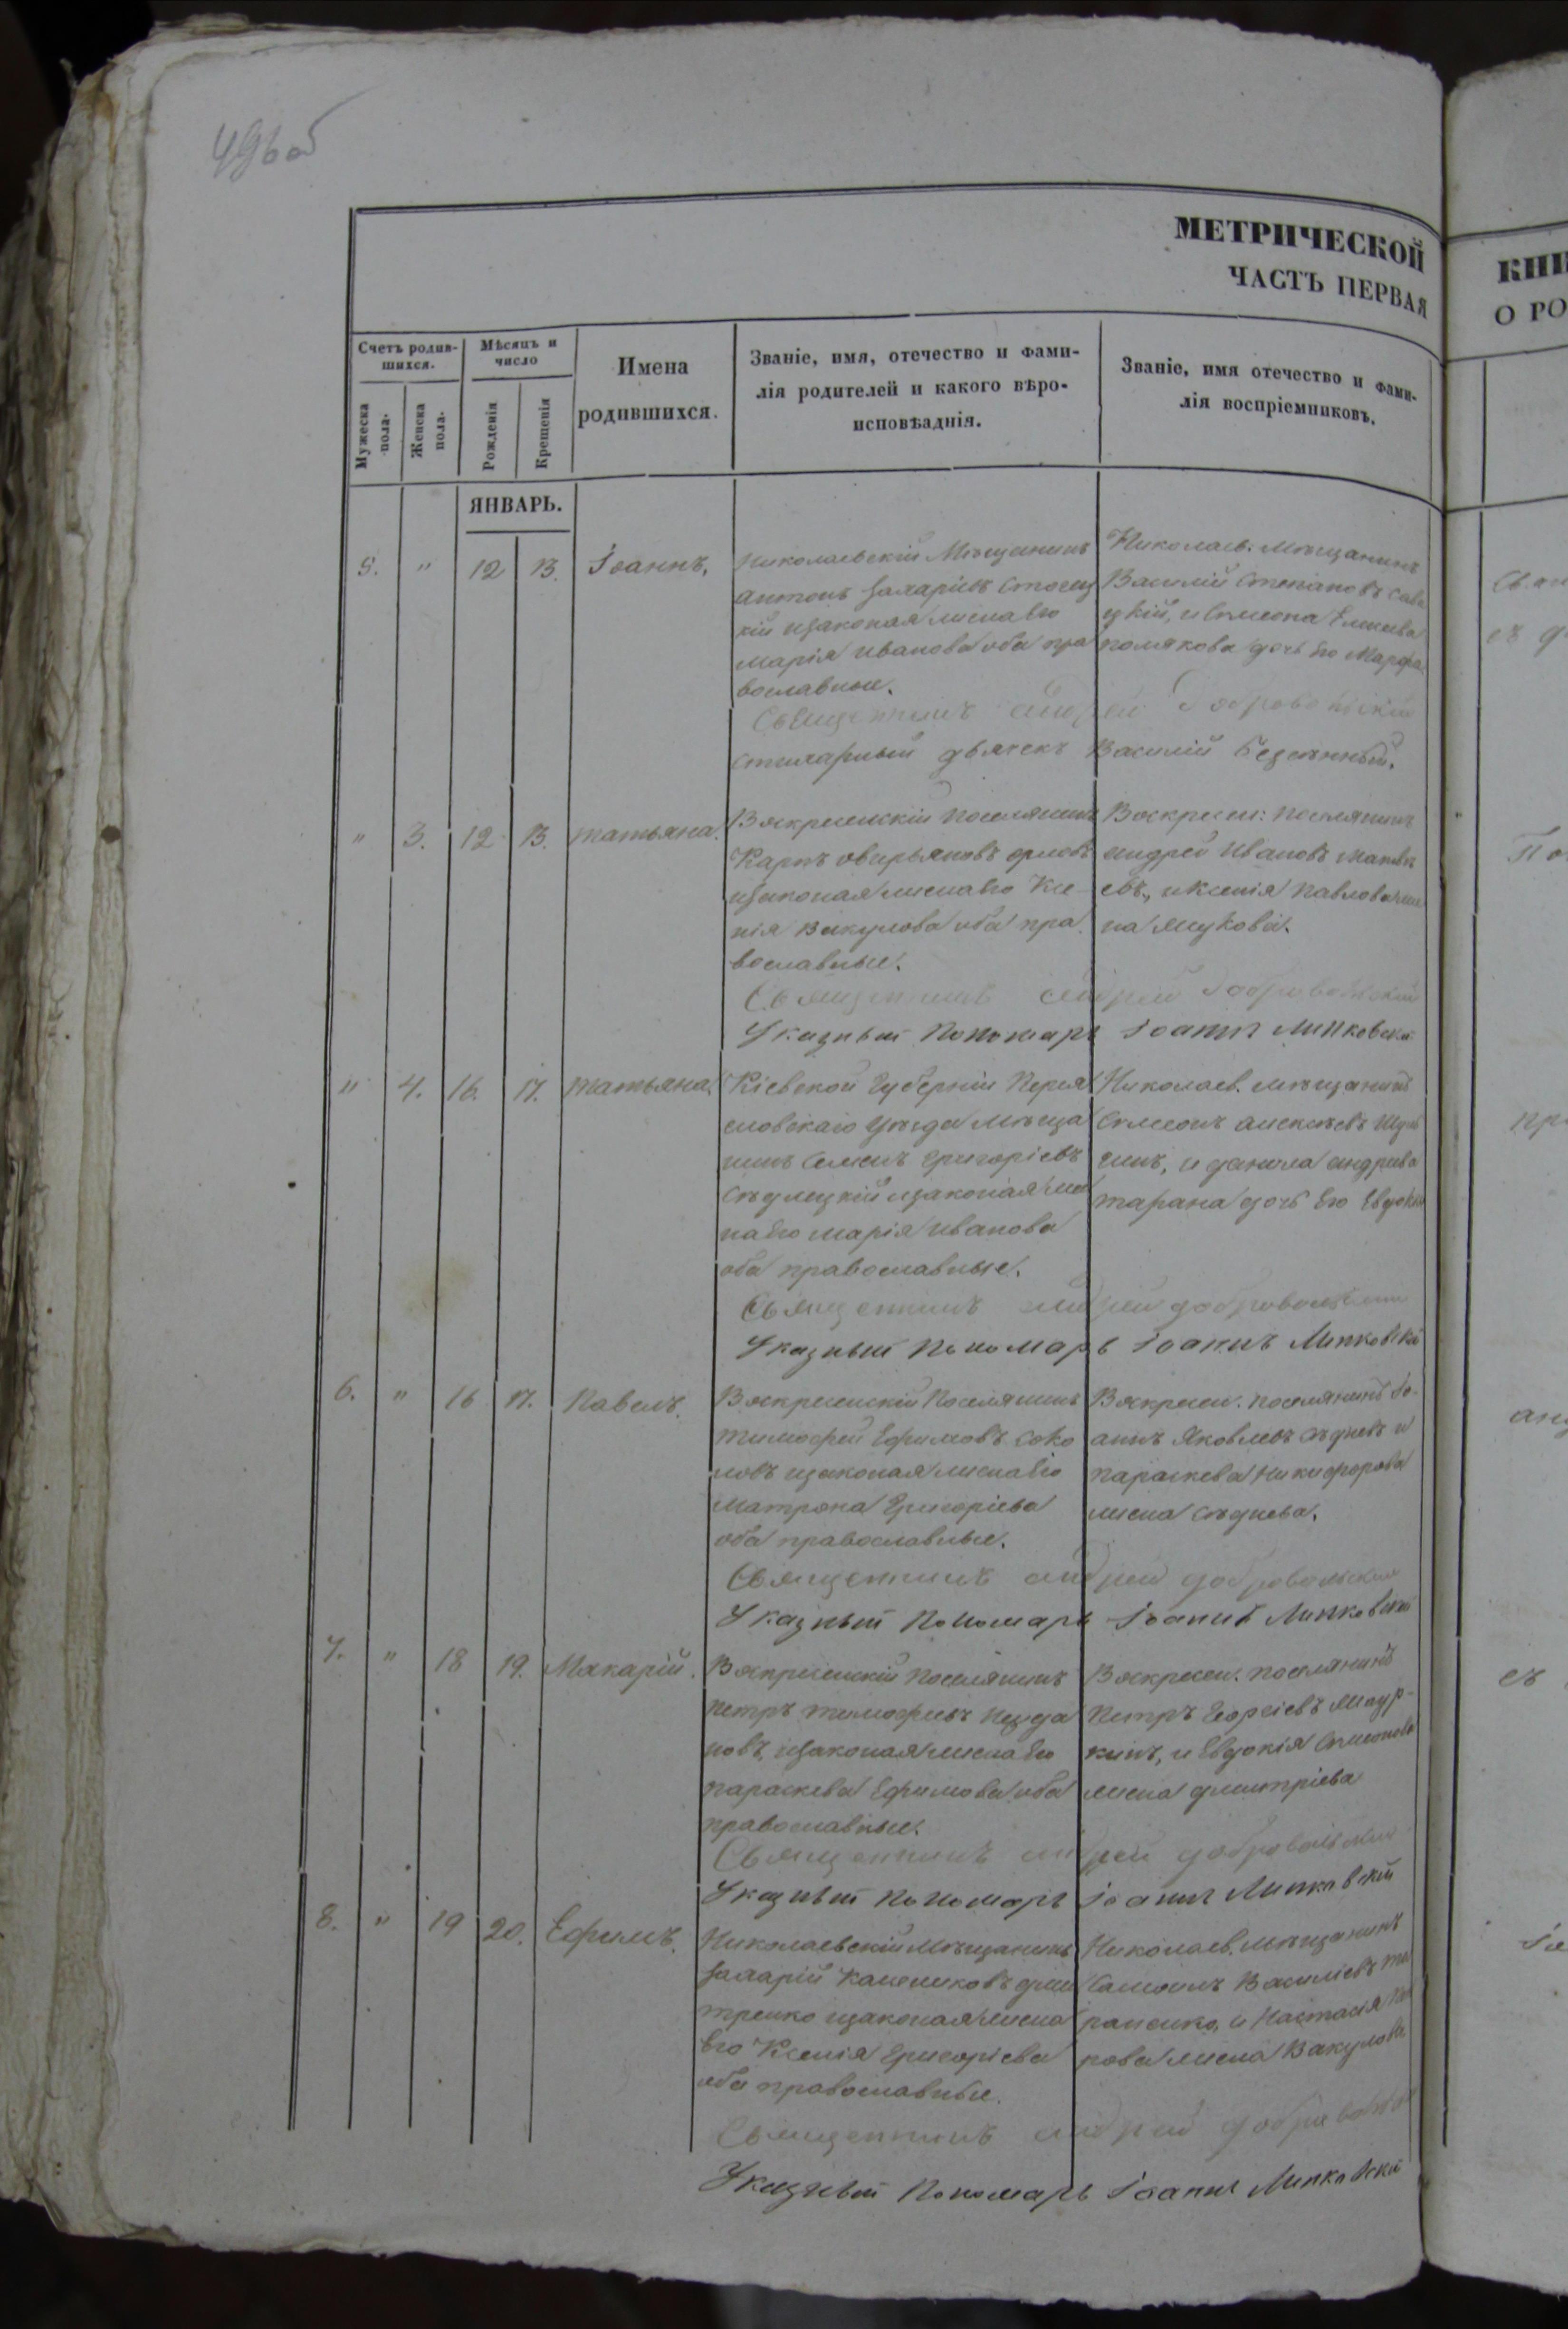 МЕТРИЧЕСКОЙ
ЧАСТЬ ПЕРВАЯ
КНИ
О РО
Счетъ родив-
шихся.
Мужеска
пола.
Женска
пола.
Мѣсяцъ и
число
Рожденія
Крещенія
Имена
родившихся.
Званіе, имя, отечество и фами-
лія родителей и какого вѣро-
исповѣаднія.
Званіе, имя отечество и фами-
лія воспріемниковъ.
ЯНВАРЬ.
5. " 12 13. Іоаннъ.
Николаевскій Мѣщанинъ
Антонъ Захаріевъ
кій изаконая жена Его
Марія Иванова оба пра
вославные.
Николаев: мѣщанинъ
Василій Степановъ Сава
цкій, и Симеона Елисеева
полякова дочь Его Марфа
Священникъ Андрей Добровольскій
дьячекъ Василій
" 3. 12 13. татьяна.
Воскресенскій Поселянинъ
Карпъ Аверьяновъ орловъ
изаконая жена Его Ксе-
нія Вакулова оба пра
вославные.
Воскресен: поселянинъ
андрей Ивановъ Матвѣ
евъ, и Ксенія Павлова же
на
Священникъ Андрей Добровольскій
Указный Пономарь Іоаннъ Липковскій
" 4. 16. 17. татьяна.
Кіевской Губерніи Перея
словскаго Уѣзда мѣща
нинъ Семенъ Григоріевъ
Сѣдлецкій изаконая же
на Его Марія Иванова
оба православные.
Николаев. мѣщанинъ
Симеонъ Алексѣевъ
гинъ, и данила андреева
тарана дочь Его Евдокія
Священникъ Андрей добровольскій
Указный Пономарь Іоаннъ Липковскій
6. " 16 17. Павелъ.
Воскресенскій Поселянинъ
тимофей Ефимовъ Соко
ловъ изаконая жена Его
Матрона Григоріева
оба православные.
Воскресен. поселянинъ Іо-
аннъ Яковлевъ Сѣдневъ и
параскева Никифорова
жена Сѣднева.
Священникъ Андрей добровольскій
Указный Пономарь Іоаннъ Липковскій
7. " 18 19. Макарій.
Воскресенскій Поселянинъ
Петръ тимофеевъ Незда
новъ, изаконая жена Его
параскева Ефимова оба
православные.
Воскресен. поселянинъ
Петръ Георгіевъ
кинъ, и Евдокія Симеонова
жена дмитріева
Священникъ Андрей добровольскій
Указный Пономарь Іоаннъ Липковскій
8. " 19 20. Ефимъ.
Николаевскій Мѣщанинъ
Захарій дми
тренко изаконая жена
Его Ксенія Григоріева
оба православные.
Николаев. мѣщанинъ
Самоилъ Василіевъ та
раненко, и Настасія
рова жена Вакулова
Священникъ Андрей добровольскій
Указный Пономарь Іоаннъ Липковскій